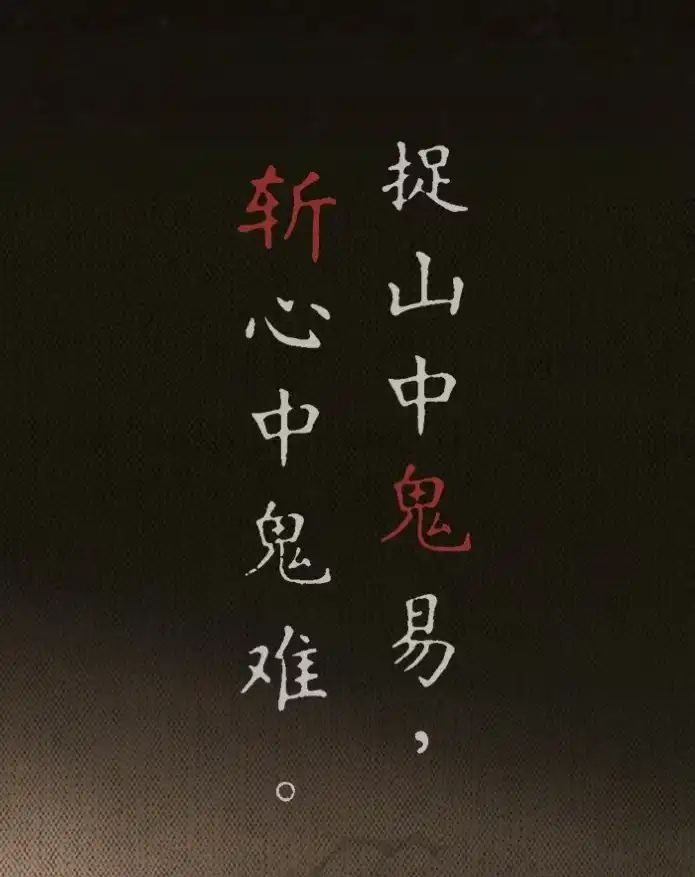 捉山中鬼易，
斩心中鬼难。